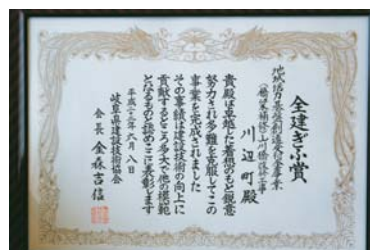 全建ぎふ賞
地域活力基盤創造交付金事業
（橋梁補修）山川橋補修工事
川辺町殿
貴殿は卓越した着想のもと鋭意
努力され多難を克服してこの
事業を完成されました
その事績は建設技術の向上に
貢献するところ多大で他の模範
となるものと認めここに表彰します
平成二十三年六月八日
岐阜県建設技術協会
会長 金森吉信